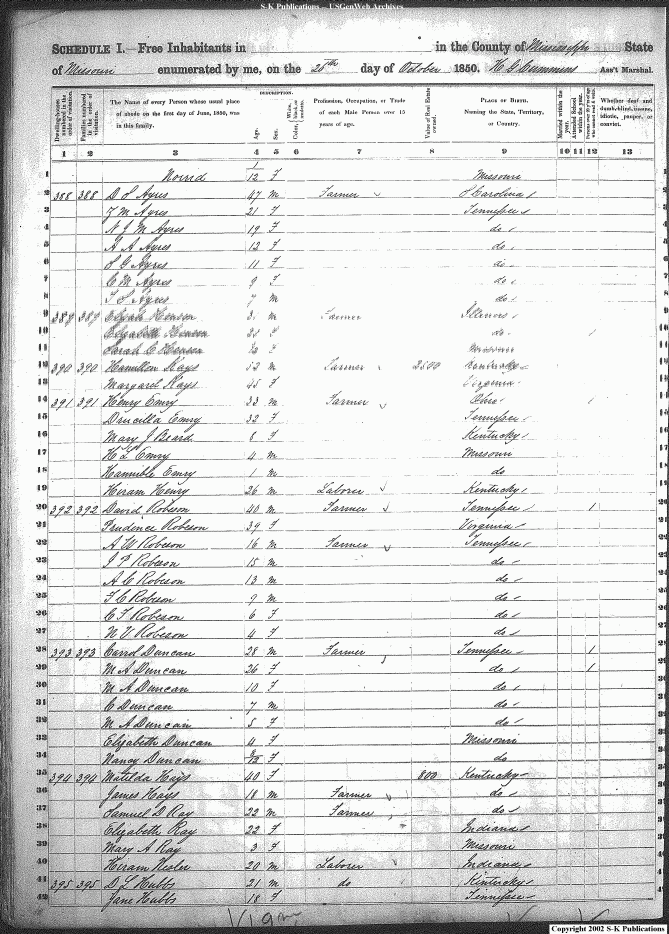 S-K Publications -- USGenWeb Archives
SCHEDULE I.—Free Inhabitants in in the County of Mississippi State
of Missouri enumerated by me, on the 25th day of October 1850. H G Cummins Ass't Marshal.
Dwelling-houses numbered in the order of visitation.
Families numbered in the order of visitation.
The Name of every Person whose usual place of abode on the first day of June, 1850, was in this family.
DESCRIPTION.
Age.
Sex.
White, black, or mulatto.
Color,
Profession, Occupation, or Trade of each Male Person over 15 years of age.
Value of Real Estate owned.
PLACE OF BIRTH. Naming the State, Territory, or Country.
Married within the year.
Attended School within the year.
Whether deaf and dumb, blind, insane, idiotic, pauper, or convict.
1 2 3 4 5 6 7 8 9 10 11 12 13
1 Norrid 1/12 F Missouri 1
2 388 388 D S Ayres 47 m Farmer S Carolina 2
3 F M Ayres 21 F Tennessee 3
4 N J M Ayres 19 F do 4
5 A A Ayres 12 F do 5
6 S G Ayres 11 F do 6
7 C M Ayres 9 F do 7
8 T S Ayres 7 m do 8
9 389 389 Elijah Henson m Farmer Illinois 9
10 Elizabeth Henson F do 1 10
11 Sarah C Henson F Missouri 11
12 390 390 Hamilton Hays 52 m Farmer 2500 Kentucky
13 Margaret Hays 45 F Virginia 13
14 391 391 Henry Emry 33 m Farmer Ohio 1 14
15 Druscilla Emry 32 F Tennessee 15
16 Mary J Beard 8 F Kentucky 16
17 H L Emry 4 m Missouri 17
18 Hannible Emry 1 m do 18
19 Hiram Henry 26 m Laborer Kentucky 19
20 392 392 David Robeson 40 m Farmer Tennessee 1 20
21 Prudence Robeson 39 F Virginia 21
22 A W Robeson 16 m Farmer Tennessee 22
23 J P Robeson 15 m do 23
24 A C Robeson 13 m do 24
25 T C Robeson 9 m do 25
26 C F Robeson 6 F do 26
27 N V Robeson 4 F do 27
28 393 393 Carrol Duncan 28 m Farmer Tennessee 1 28
29 M A Duncan 26 F do 1 29
30 M A Duncan 10 F do 30
31 C Duncan 7 m do 31
32 M A Duncan 5 F do 32
33 Elizabeth Duncan 4 F Missouri 33
34 Nancy Duncan F do 34
35 394 394 Matilda Hays 40 F 800 Kentucky 35
36 James Hays 18 m Farmer do 36
37 Samuel D Ray 22 m Farmer do 37
38 Elizabeth Ray 22 F Indiana 38
39 Mary A Ray 3 F Missouri 39
40 Hiram 20 m Laborer Indiana 40
41 395 395 D L Hubbs 21 m do Kentucky 41
42 Jane Hubbs 18 F Tennessee 42
Copyright 2002 S-K Publications